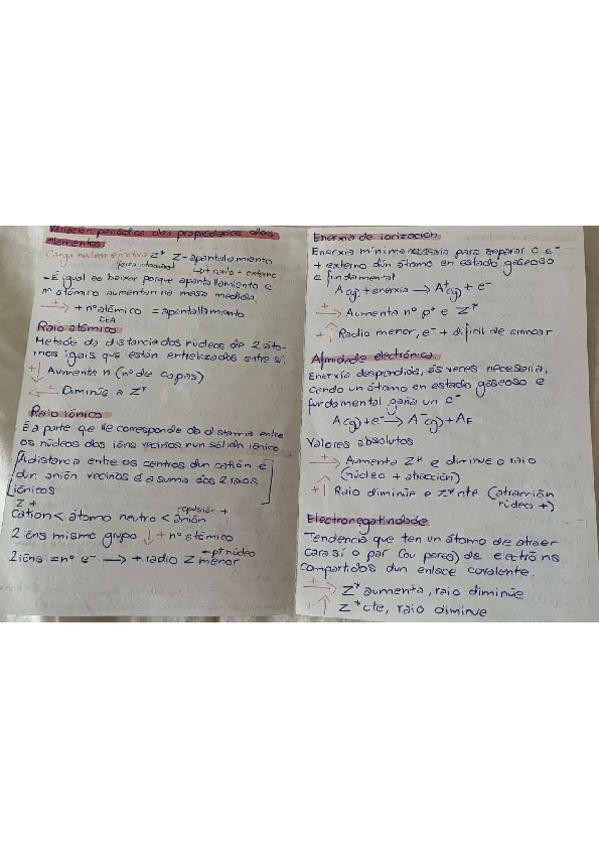 Variación periódica das propiedades dos
elementos
Carga nuclear efectiva Z* Z-apantallamento
- É igual ao baixar porque apantallamiento e
nº atómico aumentan na mesma medida.
+ → + nº atómico = apantallamento
Raio atómico
Metade da distancia dos núcleos de 2 áto-
mos iguais que están enlazados entre sí.
+↓ Aumenta n (nº de capas)
+← Diminúe a Z*
Raio iónico
É a parte que lle corresponde da distancia entre
os núcleos dos ións veciños nun sólido iónico
[A distancia entre os centros dun catión e
dun anión veciños é a suma dos 2 raios
iónicos]
Z + repulsión +
catión < átomo neutro < anión
2 ións mesmo grupo ↓ + nº atómico
2 ións = nº e⁻ → + radio Z menor
- p⁺ núcleo
Enerxía de ionización
Enerxía mínima necesaria para separar o e⁻
+ externo dun átomo en estado gaseoso
e fundamental
A(g) + enerxía → A⁺(g) + e⁻
+→ Aumenta nº p⁺ e Z*
+↑ Radio menor, e⁻ + difícil de arrincar
Afinidade electrónica
Enerxía desprendida, ás veces necesaria,
cando un átomo en estado gaseoso e
fundamental gaña un e⁻
A(g) + e⁻ → A⁻(g) + AE
Valores absolutos
+→ Aumenta Z* e diminúe o raio
(núcleo + atracción)
+↑ Raio diminúe e Z* cte (atracción
núcleo +)
Electronegatividade
Tendencia que ten un átomo de atraer
cara sí o par (ou pares) de electróns
compartidos dun enlace covalente.
+→ Z* aumenta, raio diminúe
+↑ Z* cte, raio diminúe